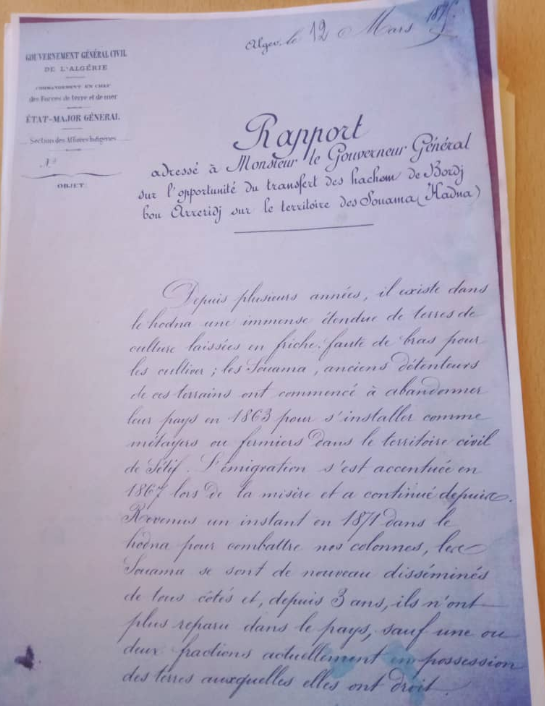 GOUVERNEMENT GÉNÉRAL CIVIL
DE L'ALGÉRIE
COMMANDEMENT EN CHEF
des Forces de terre et de mer
ÉTAT-MAJOR GÉNÉRAL
Section des Affaires Indigènes
N°
OBJET:
Alger, le 12 Mars
Rapport
adressé à Monsieur le Gouverneur Général
sur l'opportunité du transfert des hachem de Bordj
bou Arreridj sur le territoire des Souama (Hadna)
Depuis plusieurs années, il existe dans
le hodna une immense étendue de terres de
culture laissées en friche faute de bras pour
les cultiver ; les Souama, anciens détenteurs
de ces terrains ont commencé à abandonner
leur pays en 1863 pour s'installer comme
métayers ou fermiers dans le territoire civil
de Sétif. L'émigration s'est accentuée en
1867 lors de la misère et a continué depuis.
Revenus un instant en 1871 dans le
hodna pour combattre nos colonnes, les
Souama se sont de nouveau disséminés
de tous côtés et, depuis 3 ans, ils n'ont
plus reparu dans le pays, sauf une ou
deux fractions actuellement en possession
des terres auxquelles elles ont droit.